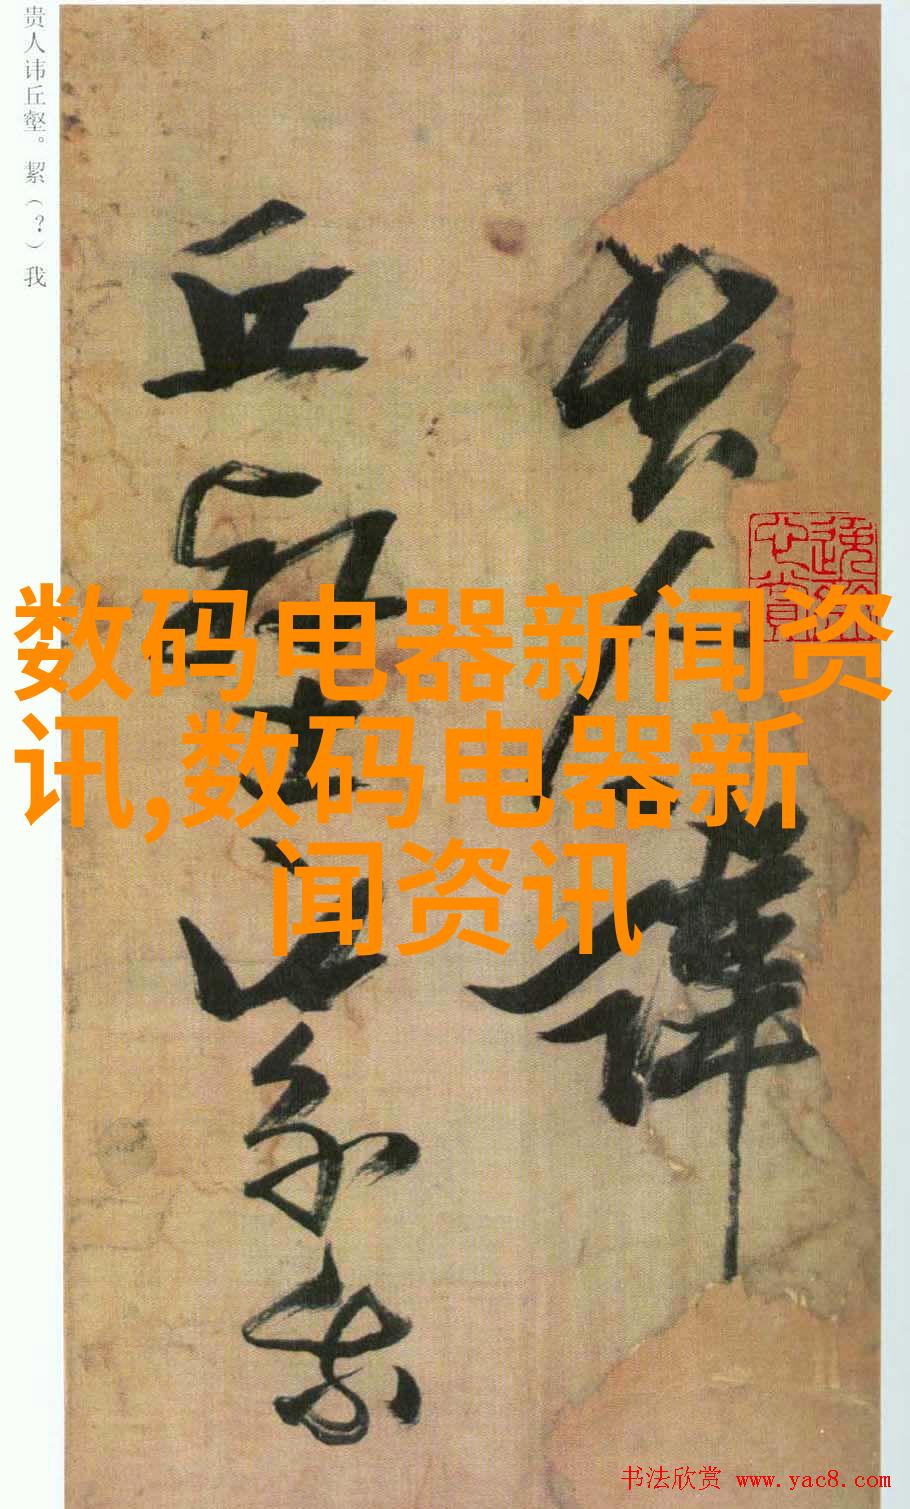 贵人讳丘壑。絜（？）我
贵人讳
丘壑
絜我
数码电器新闻资
讯,数码电器新
闻资讯
书法欣赏 www.yac8.com